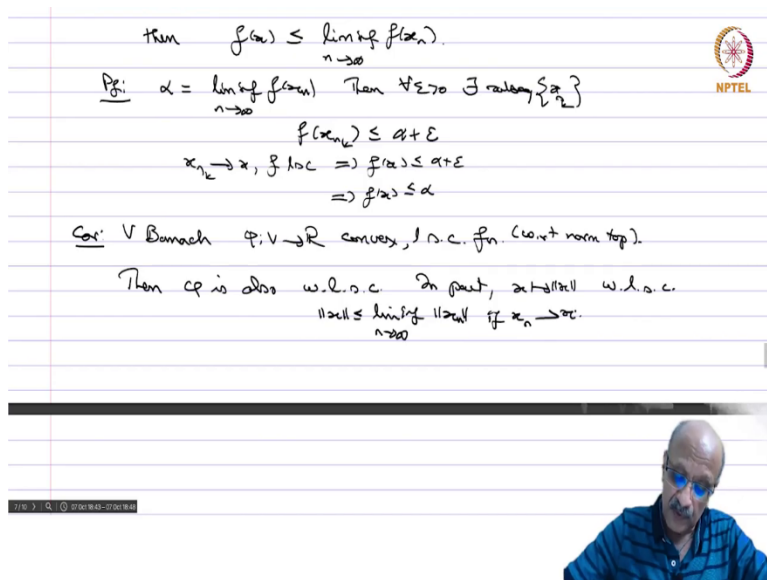 then f(x) ≤ liminf f(xn).
n→∞
NPTEL
Pf: α = liminf f(xn) Then ∀ε>0 ∃ subseq {x_{n_k}}
n→∞
f(x_{n_k}) ≤ α+ε
x_{n_k} → x, f lsc ⇒ f(x) ≤ α+ε
⇒ f(x) ≤ α
Cor: V Banach φ: V→ℝ convex, l.s.c. fn. (w.r.t norm top).
Then φ is also w.l.s.c. In part, x↦||x|| w.l.s.c.
||x|| ≤ liminf ||xn|| if xn ⇀ x.
n→∞
7/10 07 Oct 18:43-07 Oct 18:48